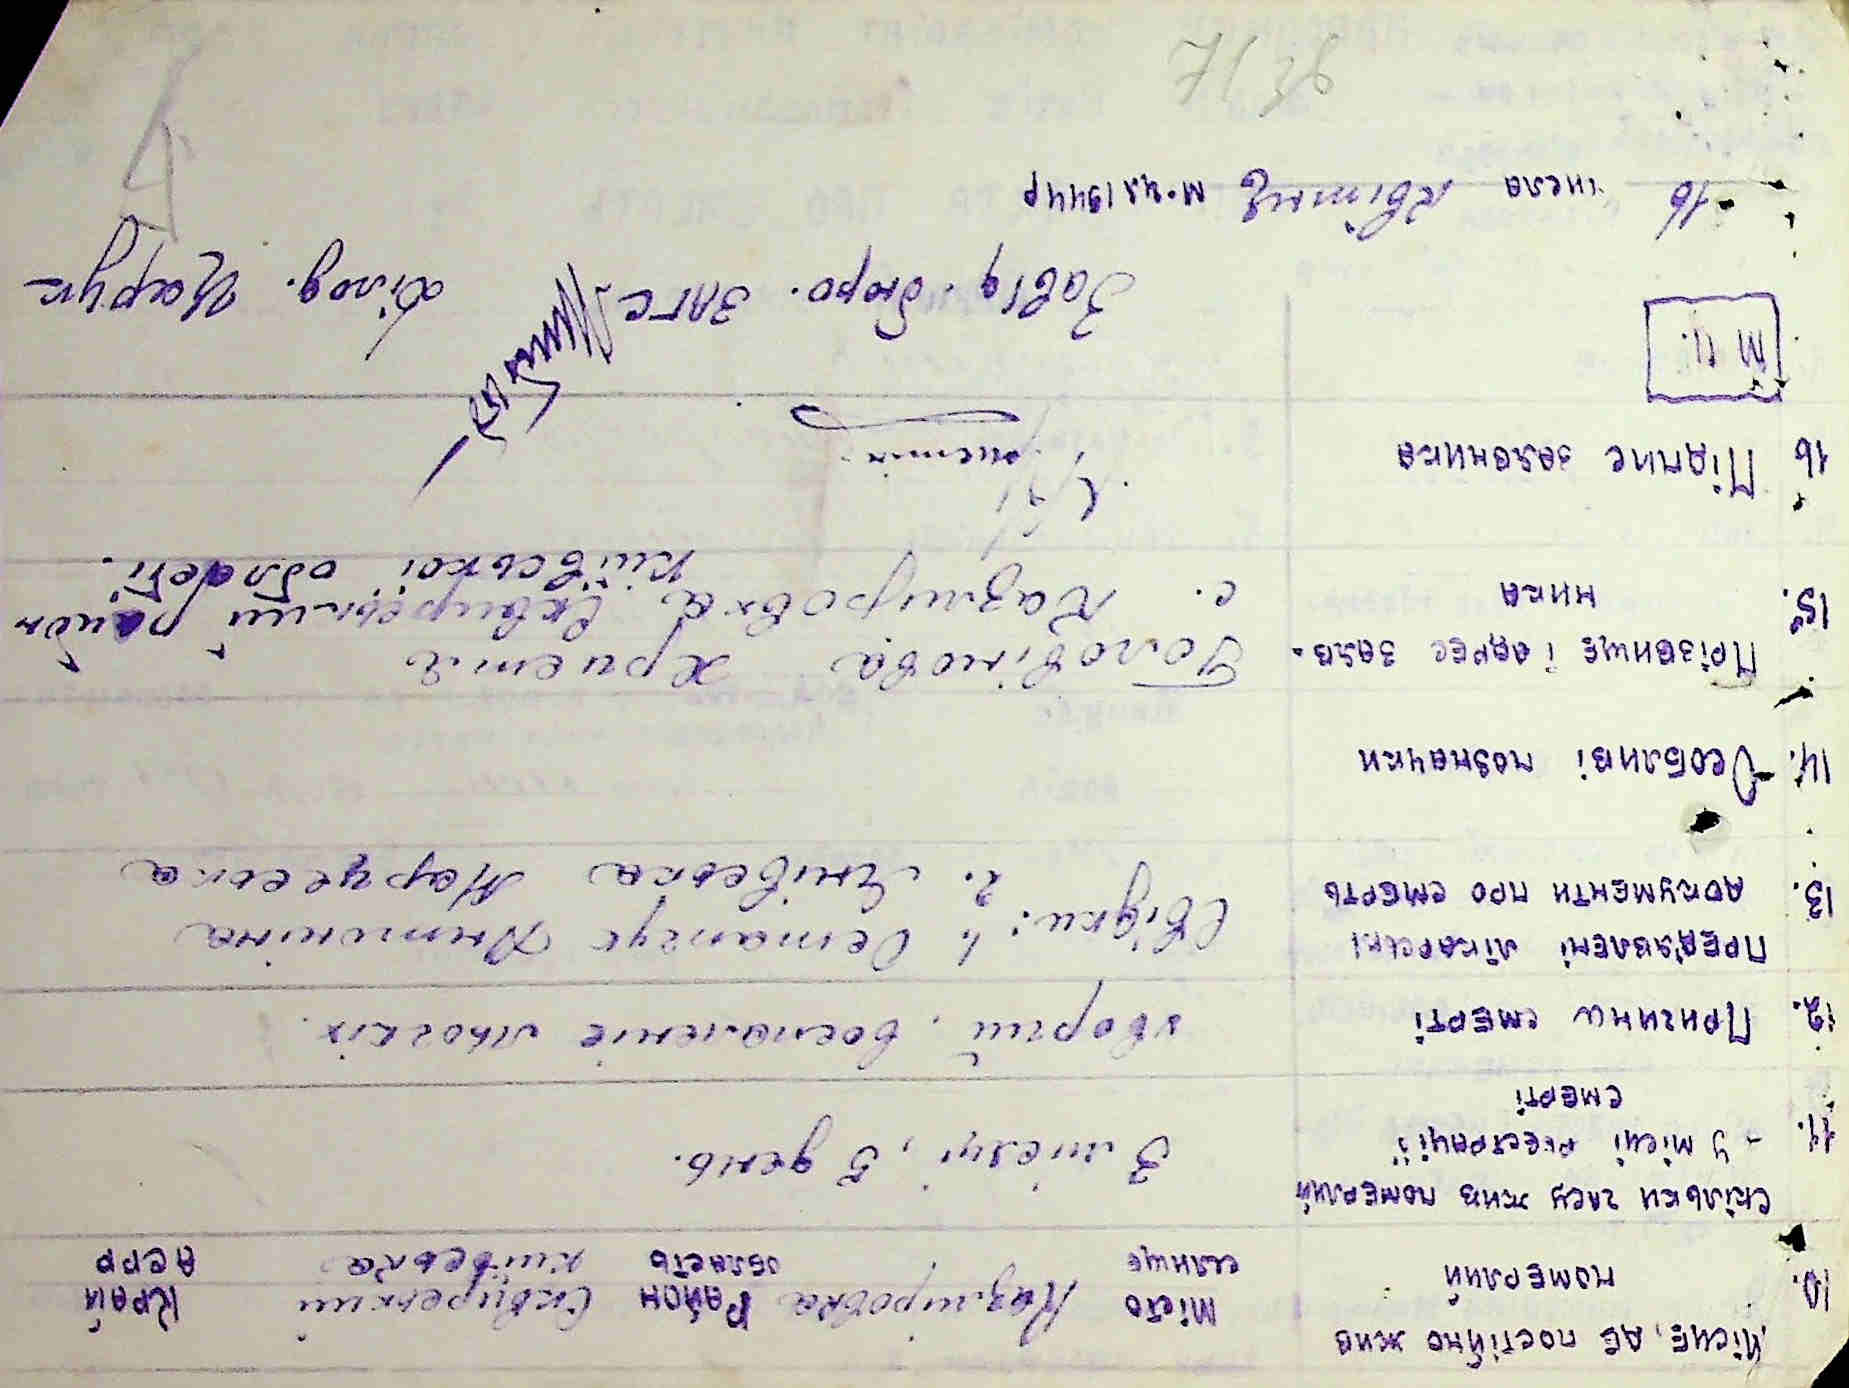 10. Місце, де постійно жив померлий
місто селище Казмировка Район Сквирський область київська Край АСРР
11. Скільки часу жив померлий
- у місці реєстрації смерті
3 місяці, 5 день.
12. Причини смерті
хворий, воспаленіє лвогкіх.
13. Пред'явлені лікарські
документи про смерть
Свідки: 1. Остапчук
2. Янівська
14. Особливі познаучки
15. Прізвище і адрес заяв-
ника
Головінова Христя
с. Казмировка Сквирський район
київської області.
16 Підпис заявника
М П.
Завід. бюро. ЗАГС Діловод.
16 числа квітня м-ця 1944 р